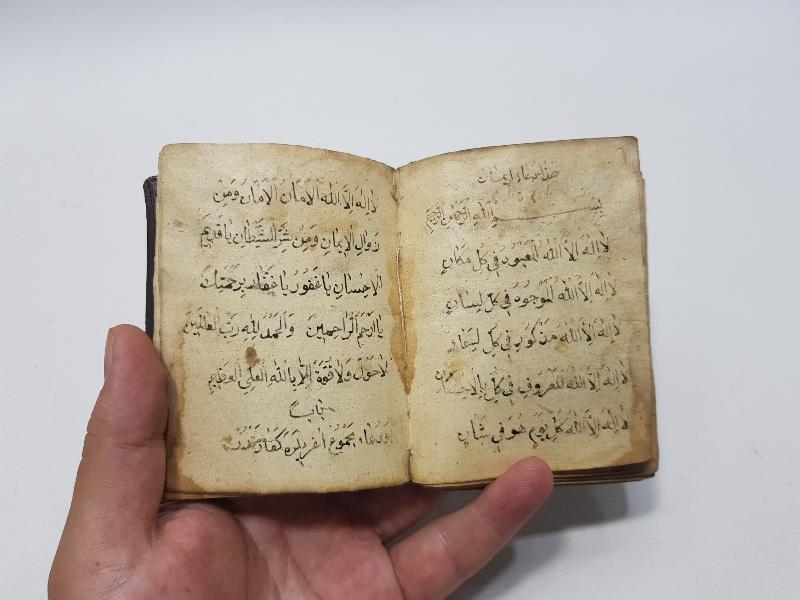 هذا دعاء ايمان
بسم الله الرحمن الرحيم
لا اله الا الله المعبود في كل مكان
لا اله الا الله الموجود في كل لسان
لا اله الا الله مذكور في كل
لا اله الا الله المعروف في كل بالاحسان
لا اله الا الله كل يوم هو في شان
لا اله الا الله الامان الامان ومن
زوال الايمان ومن شر الشيطان يا قديم
الاحسان يا غفور يا غفار برحمتك
يا ارحم الراحمين والحمد لله رب العالمين
لا حول ولا قوة الا بالله العلي العظيم
بودعاء مجموع